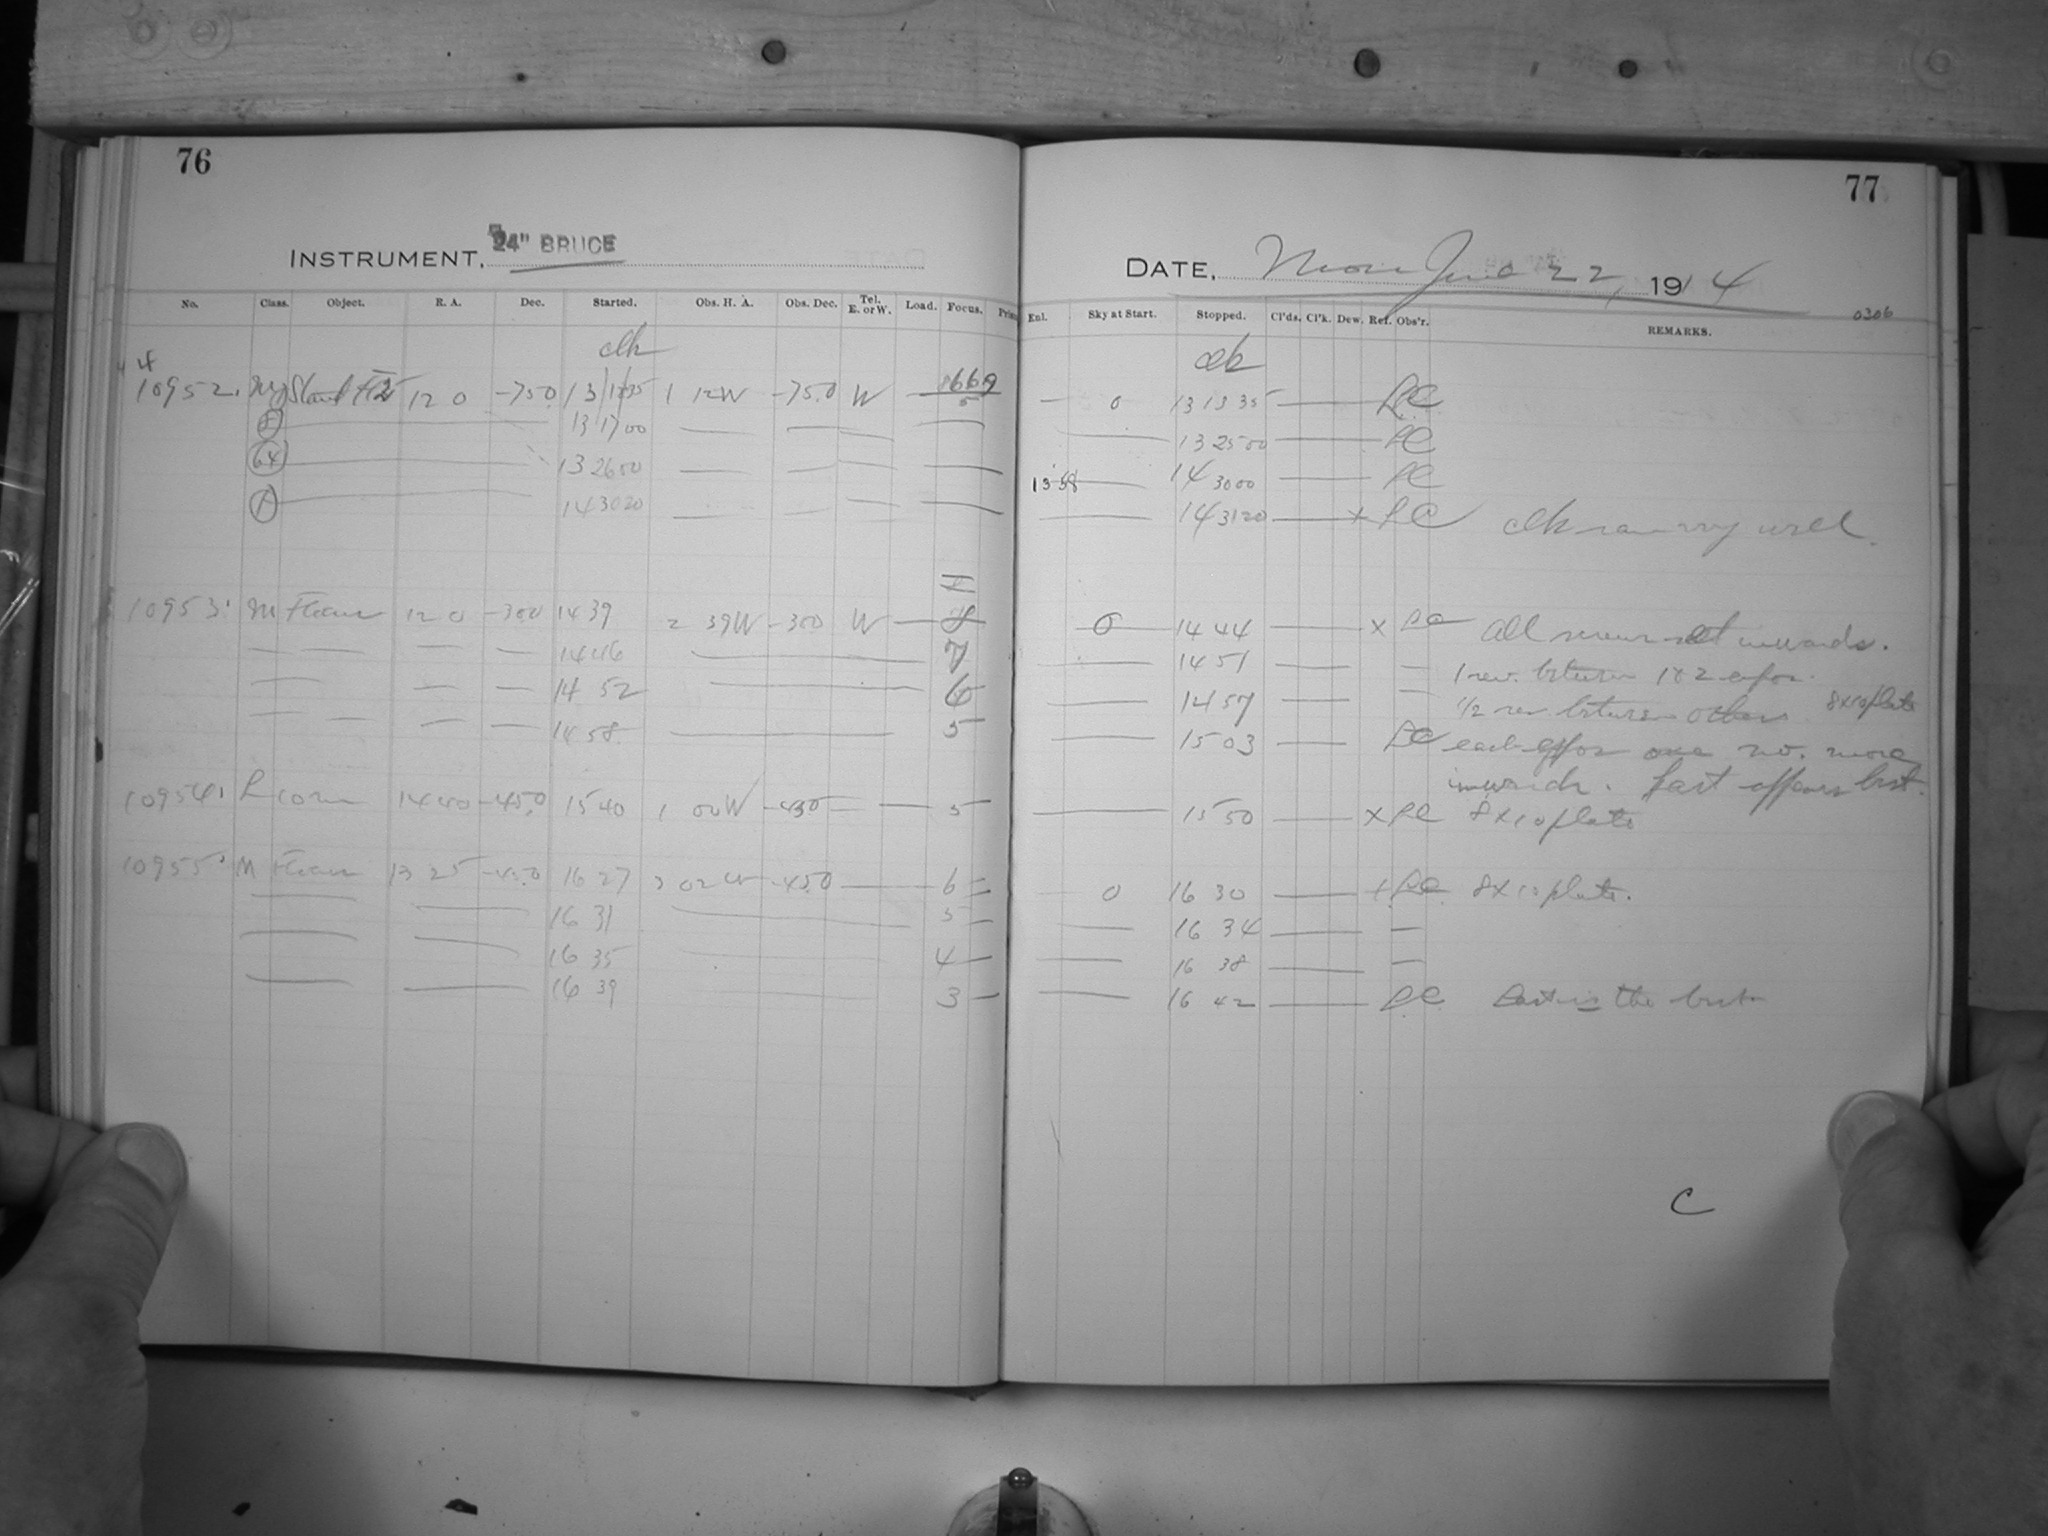 76
INSTRUMENT, 24" BRUCE
No. Class. Object. R. A. Dec. Started. Obs. H. A. Obs. Dec. Tel. E. or W. Load. Focus.
clk
10952. 12 0 -75.0 13 1 12W -75.0 W 5
13 17 00
64 13 26 00
14 30 20
H
10953. M 12 0 -30.0 14 39 2 39W -30.0 W 8
14 46 7
14 52 6
14 58 5
10954. R 14 40 -45.0 15 40 1 00W -45.0 5
10955. M 13 25 -45.0 16 27 3 02W -45.0 6
16 31 5
16 35 4
16 39 3
77
DATE, June 22, 1914
Enl. Sky at Start. Stopped. Cl'ds. Cl'k. Dew. Ref. Obs'r. REMARKS. 0306
clk
0 13 13 35
13 25 00
13 58 14 30 00
14 31 20 x clk ran very well.
0 14 44 x all screws set inwards.
14 51 1 rev. between 1 & 2 expos.
14 57 1/2 rev. between others 8x10 plate
15 03 each expos one no. more
inwards. Last appears best.
15 50 x 8x10 plate
0 16 30 8x10 plate.
16 34
16 38
16 42 Last is the best
C